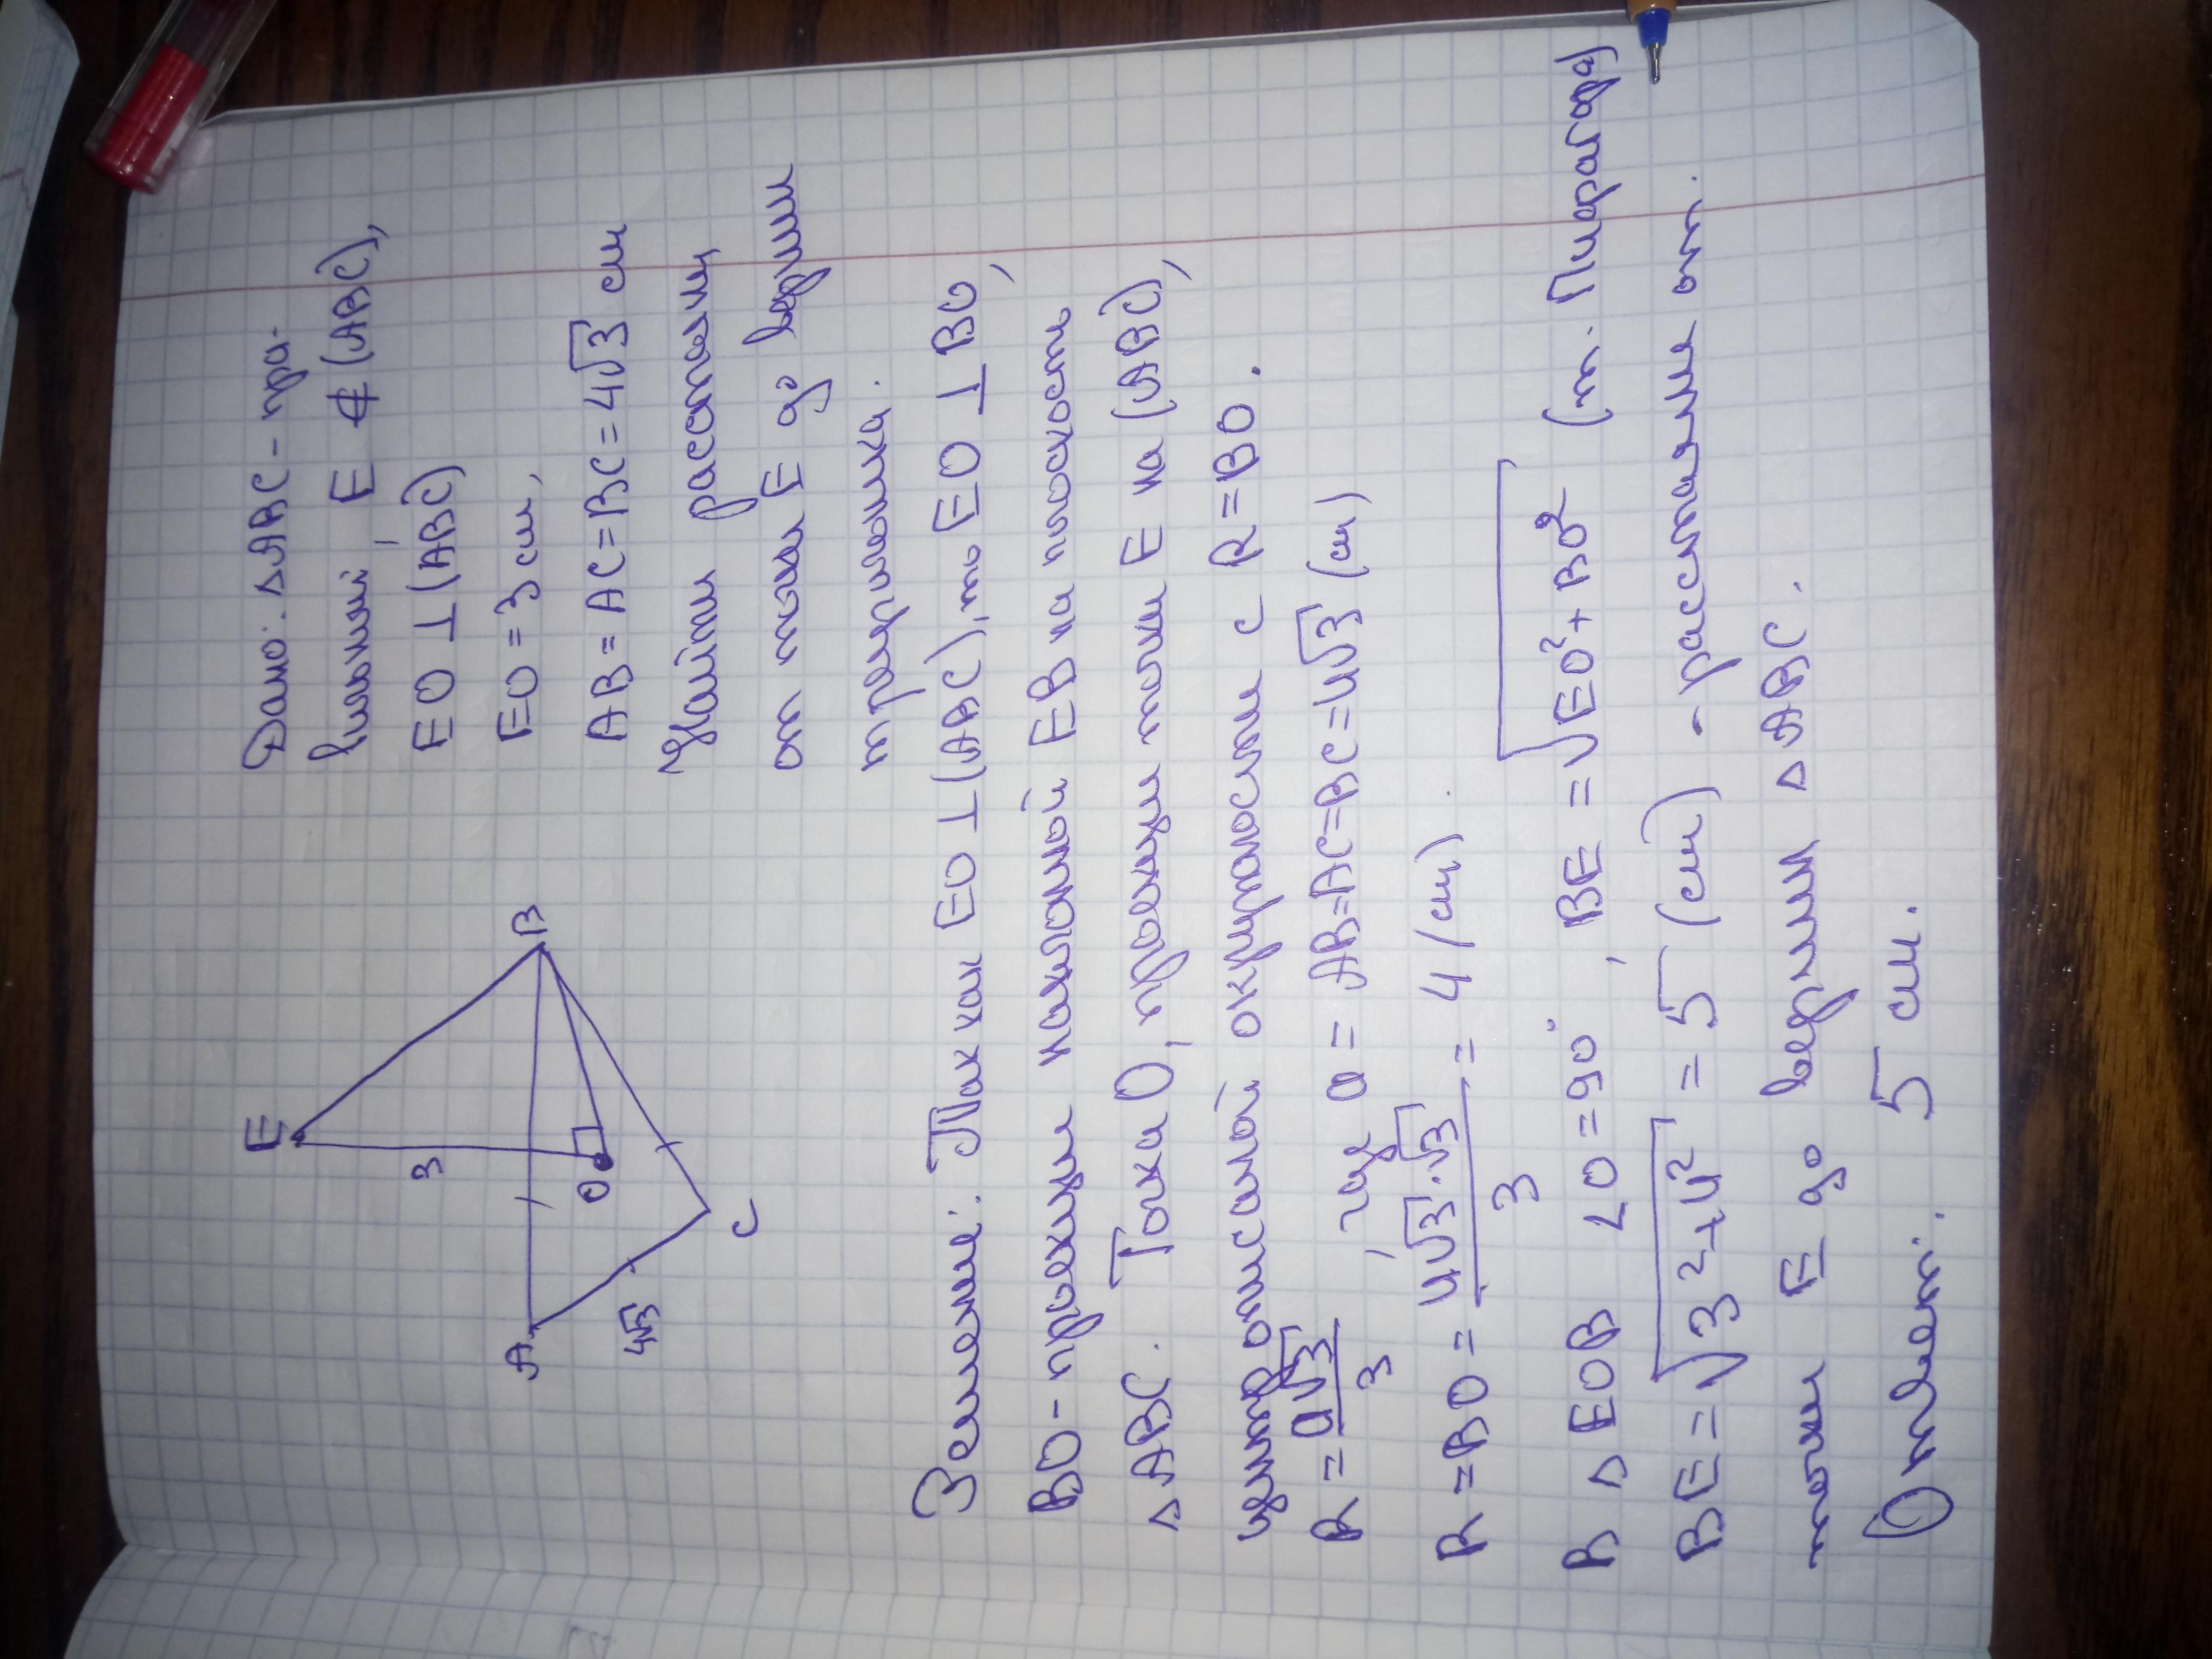 E
3
B
A
O
C
4√3
Дано: △ABC - пра-
вильный, E ∉ (ABC),
EO ⊥ (ABC)
EO = 3 см,
AB = AC = BC = 4√3 см
Найти расстояние
от точки E до вершин
треугольника.
Решение: Так как EO ⊥ (ABC), то EO ⊥ BO,
BO - проекция наклонной EB на плоскость
△ABC. Точка O, проекция точки E на (ABC),
центр описанной окружности с R = BO.
R = a√3/3, где a = AB = AC = BC = 4√3 (см)
R = BO = 4√3·√3/3 = 4 (см).
В △EOB ∠O = 90°, BE = √EO²+BO² (т. Пифагора)
BE = √3²+4² = 5 (см) - расстояние от.
точки E до вершин △ABC.
Ответ: 5 см.